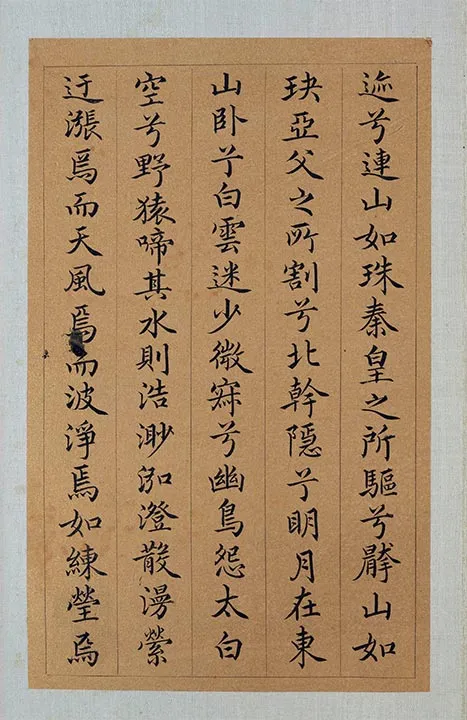 迹兮連山如珠秦皇之所驅兮擘山如
玦亞父之所割兮北幹隱兮明月在東
山卧兮白雲迷少微寂兮幽鳥怨太白
空兮野猿啼其水則浩渺泓澄散漫縈
迂漲焉而天風焉而波淨焉如練瑩焉